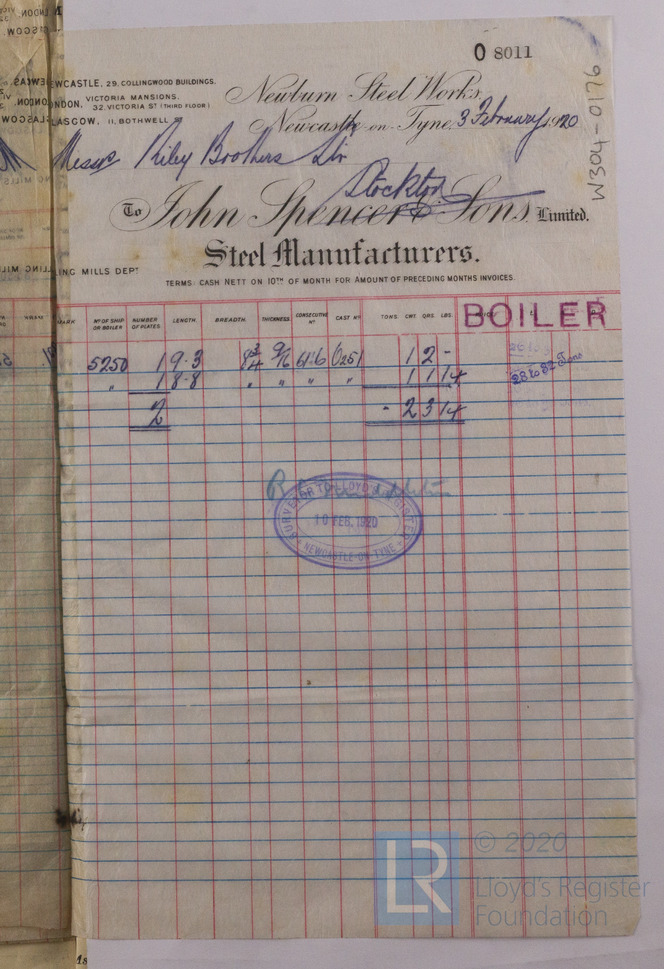 O 8011
W304-0176
NEWCASTLE, 29. COLLINGWOOD BUILDINGS.
LONDON, VICTORIA MANSIONS, 32. VICTORIA ST (THIRD FLOOR)
GLASGOW, 11, BOTHWELL ST
Newburn Steel Works,
Newcastle on Tyne, 3 February 1920
Messrs Riley Brothers Ltd
Stockton
To John Spencer & Sons, Limited.
Steel Manufacturers.
ROLLING MILLS DEPT
TERMS: CASH NETT ON 10TH OF MONTH FOR AMOUNT OF PRECEDING MONTHS INVOICES.
MARK. No OF SHIP OR BOILER NUMBER OF PLATES. LENGTH. BREADTH. THICKNESS. CONSECUTIVE No CAST No TONS. CWT. QRS. LBS. BOILER
5250 1 9-3 8 3/4 9/16 6 0251 1 2 -
" 1 8-8 " " " " 1 1 14
28 to 32 Tons
2 - 2 3 14
SURVEYOR TO LLOYD'S REGISTER
10 FEB. 1920
NEWCASTLE-ON-TYNE
LR © 2020
Lloyd's Register
Foundation